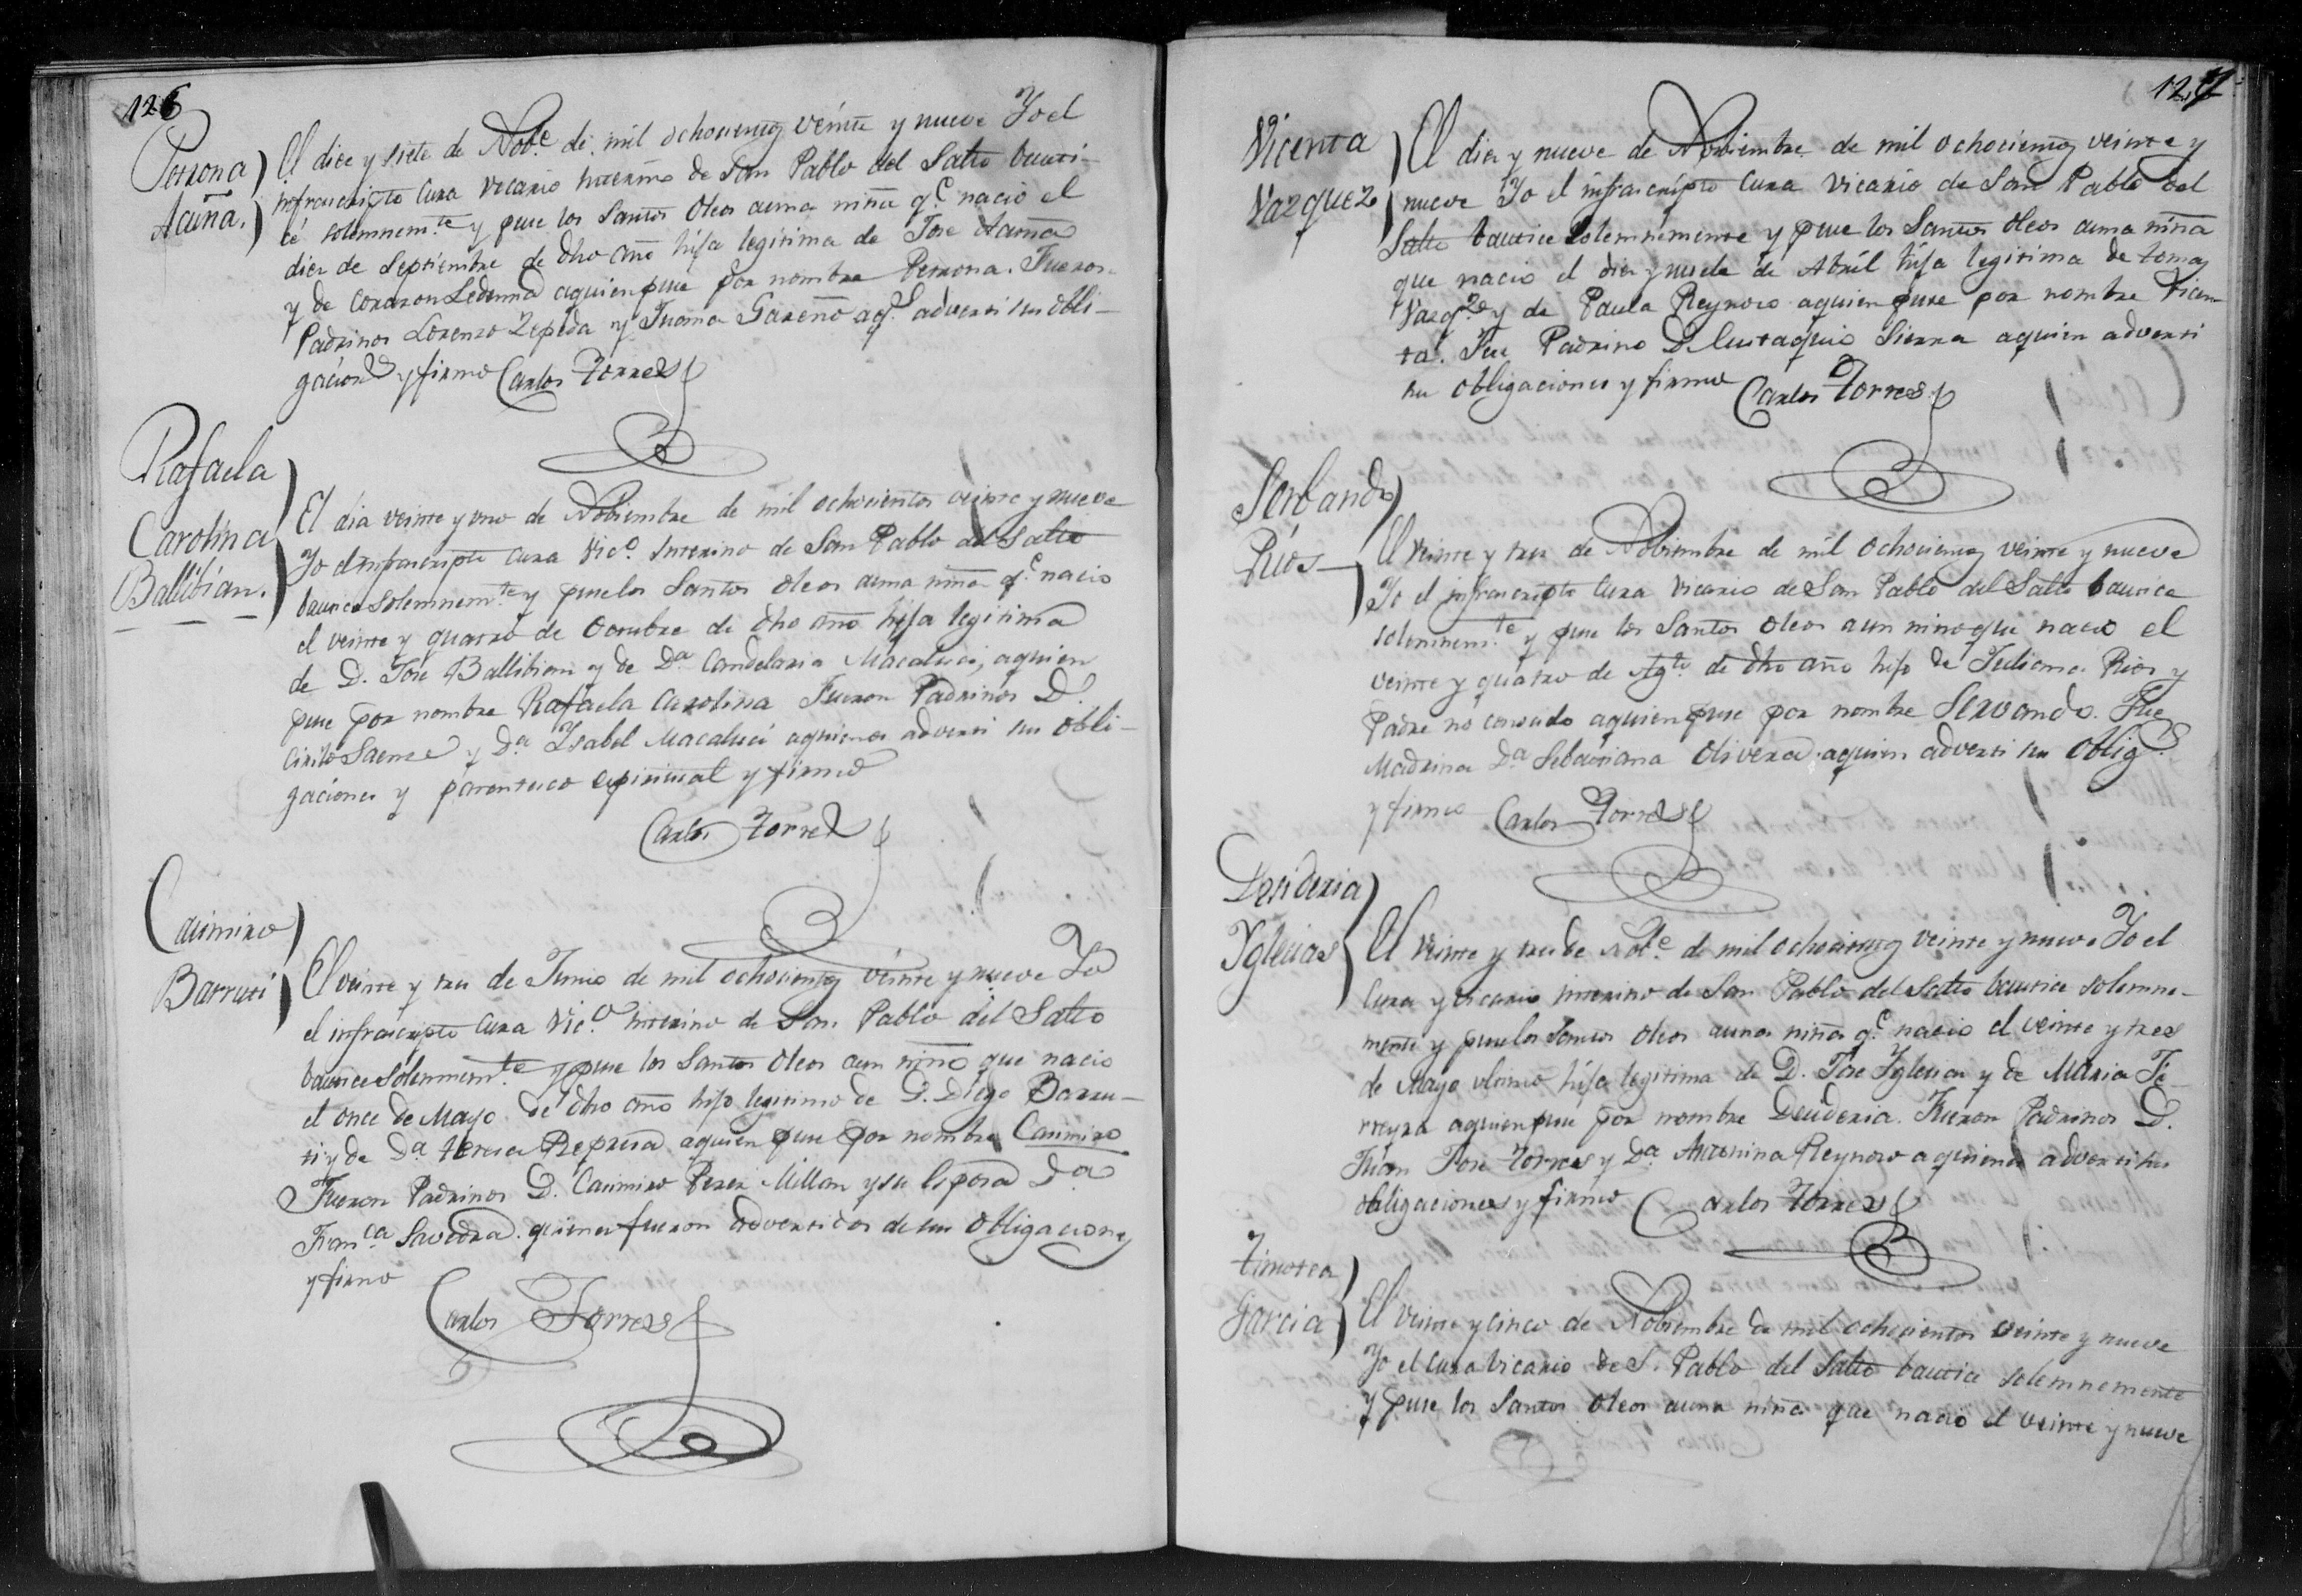 126
Petrona
Acuña.
El diez y siete de Nobe. de mil ochocientos veinte y nueve Yo el
infrascripto Cura Vicario Interino de San Pablo del Salto bauti-
cé solemnemte. y puse los Santos Oleos auna niña qe. nació el
diez de Septiembre de dho año hija legitima de Jose Acuña
y de Corazon Ledesma aquien puse por nombre Petrona. Fueron
Padrinos Lorenzo Zepeda y Juana Gareño aqs. adverti sus obli-
gaciones y firmo Carlos Torres
Rafaela
Carolina
Ballibian.
El dia veinte y uno de Nobiembre de mil ochocientos veinte y nueve
Yo el infrascripto Cura Vico. Interino de San Pablo del Salto
bautice solemnemte. y puse los Santos Oleos auna niña qe. nacio
el veinte y quatro de Octubre de dho año hija legitima
de D. Jose Ballibian y de Da. Candelaria Macaluci, aquien
puse por nombre Rafaela Carolina Fueron Padrinos D.
Cirilo Saenze y Da. Ysabel Macaluci aquienes adverti sus obli-
gaciones y parentesco espiritual y firmo
Carlos Torres
Casimiro
Barruti
El veinte y tres de Junio de mil ochocientos veinte y nueve Yo
el infrascripto Cura Vico. Interino de San Pablo del Salto
bautice solemnemte. y puse los Santos Oleos aun niño que nacio
el once de Mayo de dho año hijo legitimo de D. Diego Barru-
ti y de Da. teresa Represa aquien puse por nombre Casimiro
Fueron Padrinos D. Casimiro Perez Millan y su Esposa Da.
Franca. Savedra. quienes fueron advertidos de sus obligaciones
y firmo
Carlos Torres
127
Vicenta
Vazquez
El diez y nueve de Nobiembre de mil ochocientos veinte y
nueve Yo el infrascripto Cura Vicario de San Pablo del
Salto bautice solemnemente y puse los Santos Oleos auna niña
que nacio el diez y nueve de Abril hija legitima de tomas
Vazqz. y de Paula Reynoso aquien puse por nombre Vicen
ta. Fue Padrino D. Eustaquio Sierra aquien adverti
su obligaciones y firmo Carlos Torres
Serbando
Rios
El veinte y tres de Nobiembre de mil ochocientos veinte y nueve
Yo el infrascripto Cura Vicario de San Pablo del Salto bautice
solemnemte. y puse los Santos Oleos aun niño que nacio el
veinte y quatro de Agto. de dho año hijo de Juliana Rios y
Padre no conocido aquien puse por nombre Servando. Fue
Madrina Da. Sebastiana Olivera aquien adverti su obligs.
y firmo Carlos Torres
Desideria
Yglecias
El veinte y tres de Nobe. de mil ochocientos veinte y nueve Yo el
Cura y vicario interino de San Pablo del Salto bautice solemne-
mente y puse los Santos Oleos auna niña qe. nacio el veinte y tres
de Mayo ultimo hija legitima de D. Jose Yglesias y de Maria Fe-
rreyra aquien puse por nombre Desideria. Fueron Padrinos D.
Juan Jose Torres y Da. Antonina Reynoso a quienes adverti sus
obligaciones y firmo Carlos Torres
Timotea
Garcia
El veinte y cinco de Nobiembre de mil ochocientos veinte y nueve
Yo el Cura Vicario de S. Pablo del Salto bautice solemnemente
y puse los Santos Oleos auna niña que nació el veinte y nueve